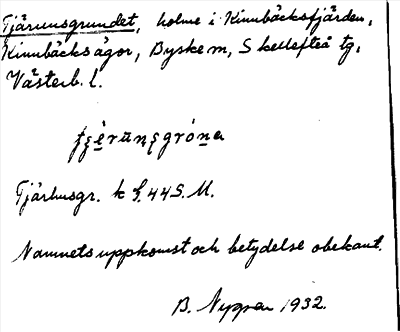 Tjärunsgrundet, holme i Kinnbäcksfjärden,
Kinnbäcks ägor, Byske m, Skellefteå tg,
Västerb. l.
Tjärhusgr. k f. 44 S. M.
Namnets uppkomst och betydelse obekant.
B. Nygren 1932.